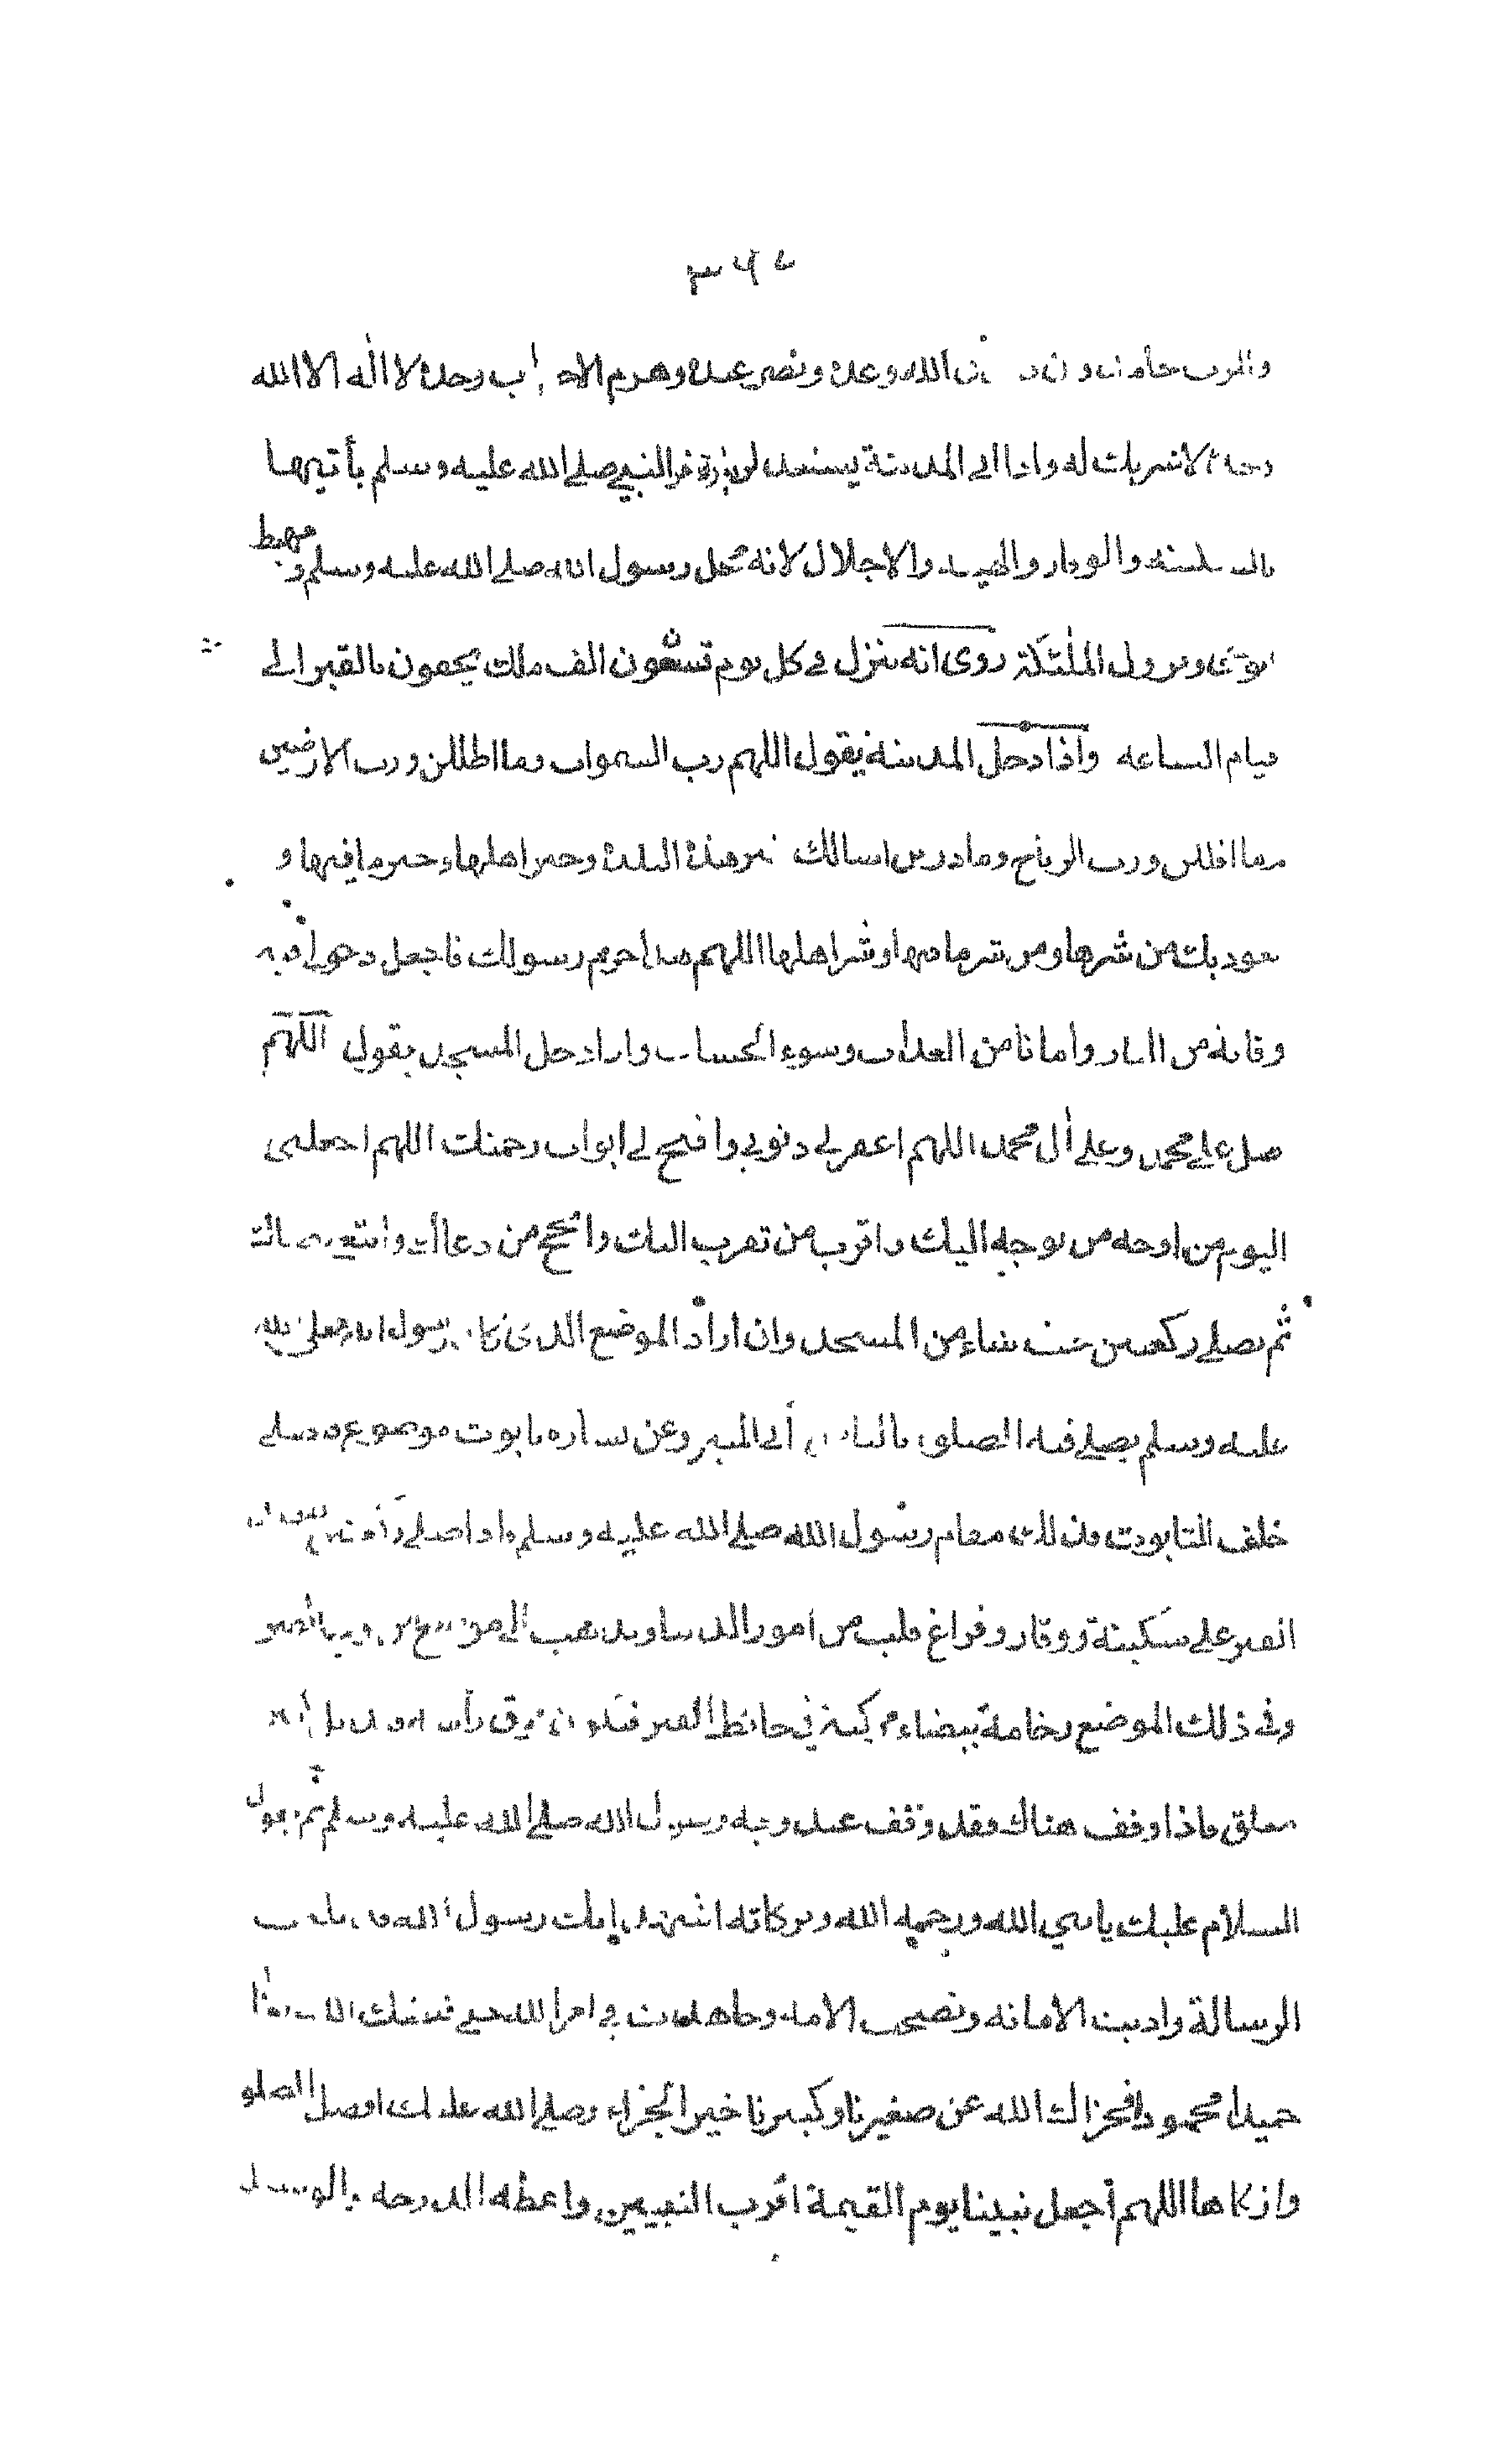 ٣٩٧
صدق الله وعده ونصر عبده وهزم الاحزاب وحده لا اله الا الله
وحده لا شريك له واذا اتى المدينة يستعد لزيارة قبر النبي صلى الله عليه وسلم يأتيها
بالسكينه والوقار والهيبه والاجلال لانه محل رسول الله صلى الله عليه وسلم ومهبط
الوحى ونزول الملئكة روى انه ينزل في كل يوم تسعون الف ملك يحفون بالقبر الى
قيام الساعه واذا دخل المدينة يقول اللهم رب السموات وما اظللن ورب الارضين
وما اقللن ورب الرياح وما ذرين اسالك خير هذه البلدة وخير اهلها وخير ما فيها و
اعوذ بك من شرها ومن شر ما فيها وشر اهلها اللهم هذا حرم رسولك فاجعل دخولى فيه
وقاية من النار وأمانا من العذاب وسوء الحساب واذا دخل المسجد يقول اللهم
صل على محمد وعلى آل محمد اللهم اغفر لي ذنوبي وافتح لي ابواب رحمتك اللهم اجعلني
اليوم من اوجه من توجه اليك واقرب من تقرب اليك وانجح من دعاك وابتغى مرضاتك
ثم يصلي ركعتين حيث شاء من المسجد وان اراد الموضع الذي كان رسول الله صلى الله
عليه وسلم يصلي فيه الصلوة الى المنبر وعن يساره تابوت موضوع
خلف التابوت فذلك مقام رسول الله صلى الله عليه وسلم واذا صلى
القبر على سكينة ووقار وفراغ قلب من امور الدنيا ويذهب الى
وفي ذلك الموضع رخامة بيضاء مركبة في حائط القبر فوق رأسه قنديل
معلق فاذا وقف هناك فقد وقف عند وجه رسول الله صلى الله عليه وسلم ثم يقول
السلام عليك يا نبي الله ورحمة الله وبركاته اشهد انك رسول الله قد بلغت
الرسالة واديت الامانه ونصحت الامه وجاهدت في امر الله حتى قبضك الله
حميدا محمودا فجزاك الله عن صغيرنا وكبيرنا خير الجزاء وصلى الله عليك افضل الصلوة
وازكاها اللهم اجعل نبينا يوم القيمة اقرب النبيين واعطه الدرجه والوسيله